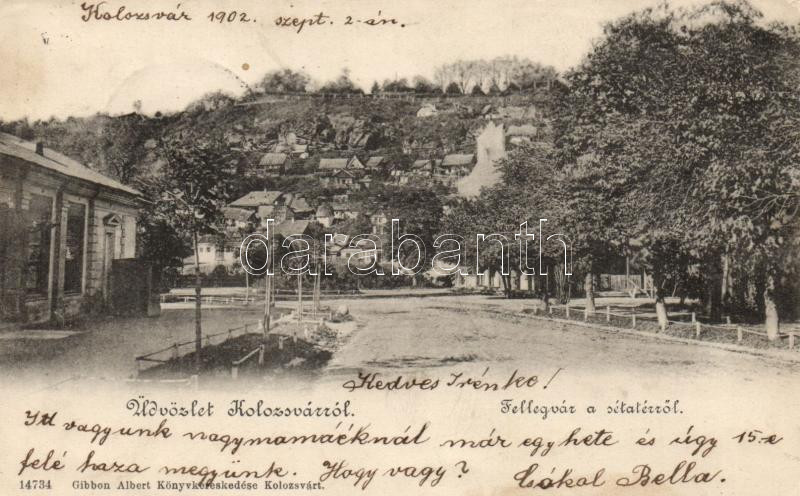 Kolozsvár 1902. szept. 2-án.
darabanth.com
Kedves Irénke!
Üdvözlet Kolozsvárról.
Fellegvár a sétatérről.
Itt vagyunk nagymamáéknál már egy hete és úgy 15-e
felé haza megyünk. Hogy vagy? Csókol Bella.
14734 Gibbon Albert Könyvkereskedése Kolozsvárt.